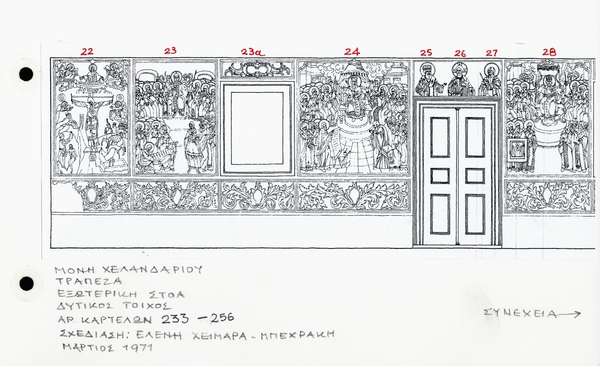 22 23 23α 24 25 26 27 28
ΜΟΝΗ ΧΕΛΑΝΔΑΡΙΟΥ
ΤΡΑΠΕΖΑ
ΕΞΩΤΕΡΙΚΗ ΣΤΟΑ
ΔΥΤΙΚΟΣ ΤΟΙΧΟΣ
ΑΡ ΚΑΡΤΕΛΩΝ 233 – 256
ΣΧΕΔΙΑΣΗ: ΕΛΕΝΗ ΧΕΙΜΑΡΑ – ΜΠΕΚΡΑΚΗ
ΜΑΡΤΙΟΣ 1971
ΣΥΝΕΧΕΙΑ →